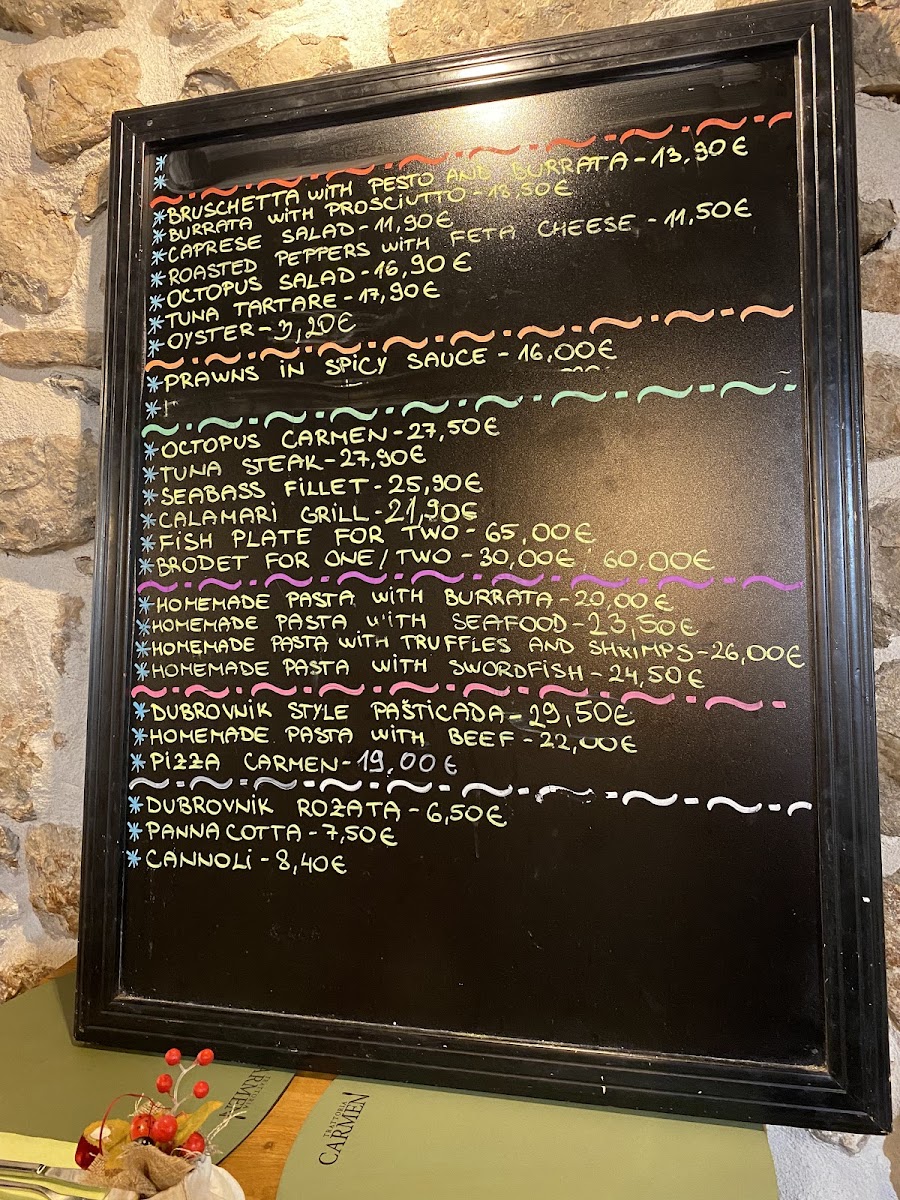 *
*
*BRUSCHETTA WITH PESTO AND BURRATA - 13,90€
*BURRATA WITH PROSCIUTTO - 18,50€
*CAPRESE SALAD - 11,90€
*ROASTED PEPPERS WITH FETA CHEESE - 11,50€
*OCTOPUS SALAD - 16,90€
*TUNA TARTARE - 17,90€
*OYSTER - 3,20€
*PRAWNS IN SPICY SAUCE - 16,00€
*
*OCTOPUS CARMEN - 27,50€
*TUNA STEAK - 27,90€
*SEABASS FILLET - 25,90€
*CALAMARI GRILL - 21,90€
*FISH PLATE FOR TWO - 65,00€
*BRODET FOR ONE/TWO - 30,00€ 60,00€
*HOMEMADE PASTA WITH BURRATA - 20,00€
*HOMEMADE PASTA WITH SEAFOOD - 23,50€
*HOMEMADE PASTA WITH TRUFFLES AND SHRIMPS - 26,00€
*HOMEMADE PASTA WITH SWORDFISH - 24,50€
*DUBROVNIK STYLE PAŠTICADA - 29,50€
*HOMEMADE PASTA WITH BEEF - 22,00€
*PIZZA CARMEN - 19,00€
*DUBROVNIK ROŽATA - 6,50€
*PANNA COTTA - 7,50€
*CANNOLI - 8,40€
TRATTORIA
CARMEN
TRATTORIA
CARMEN